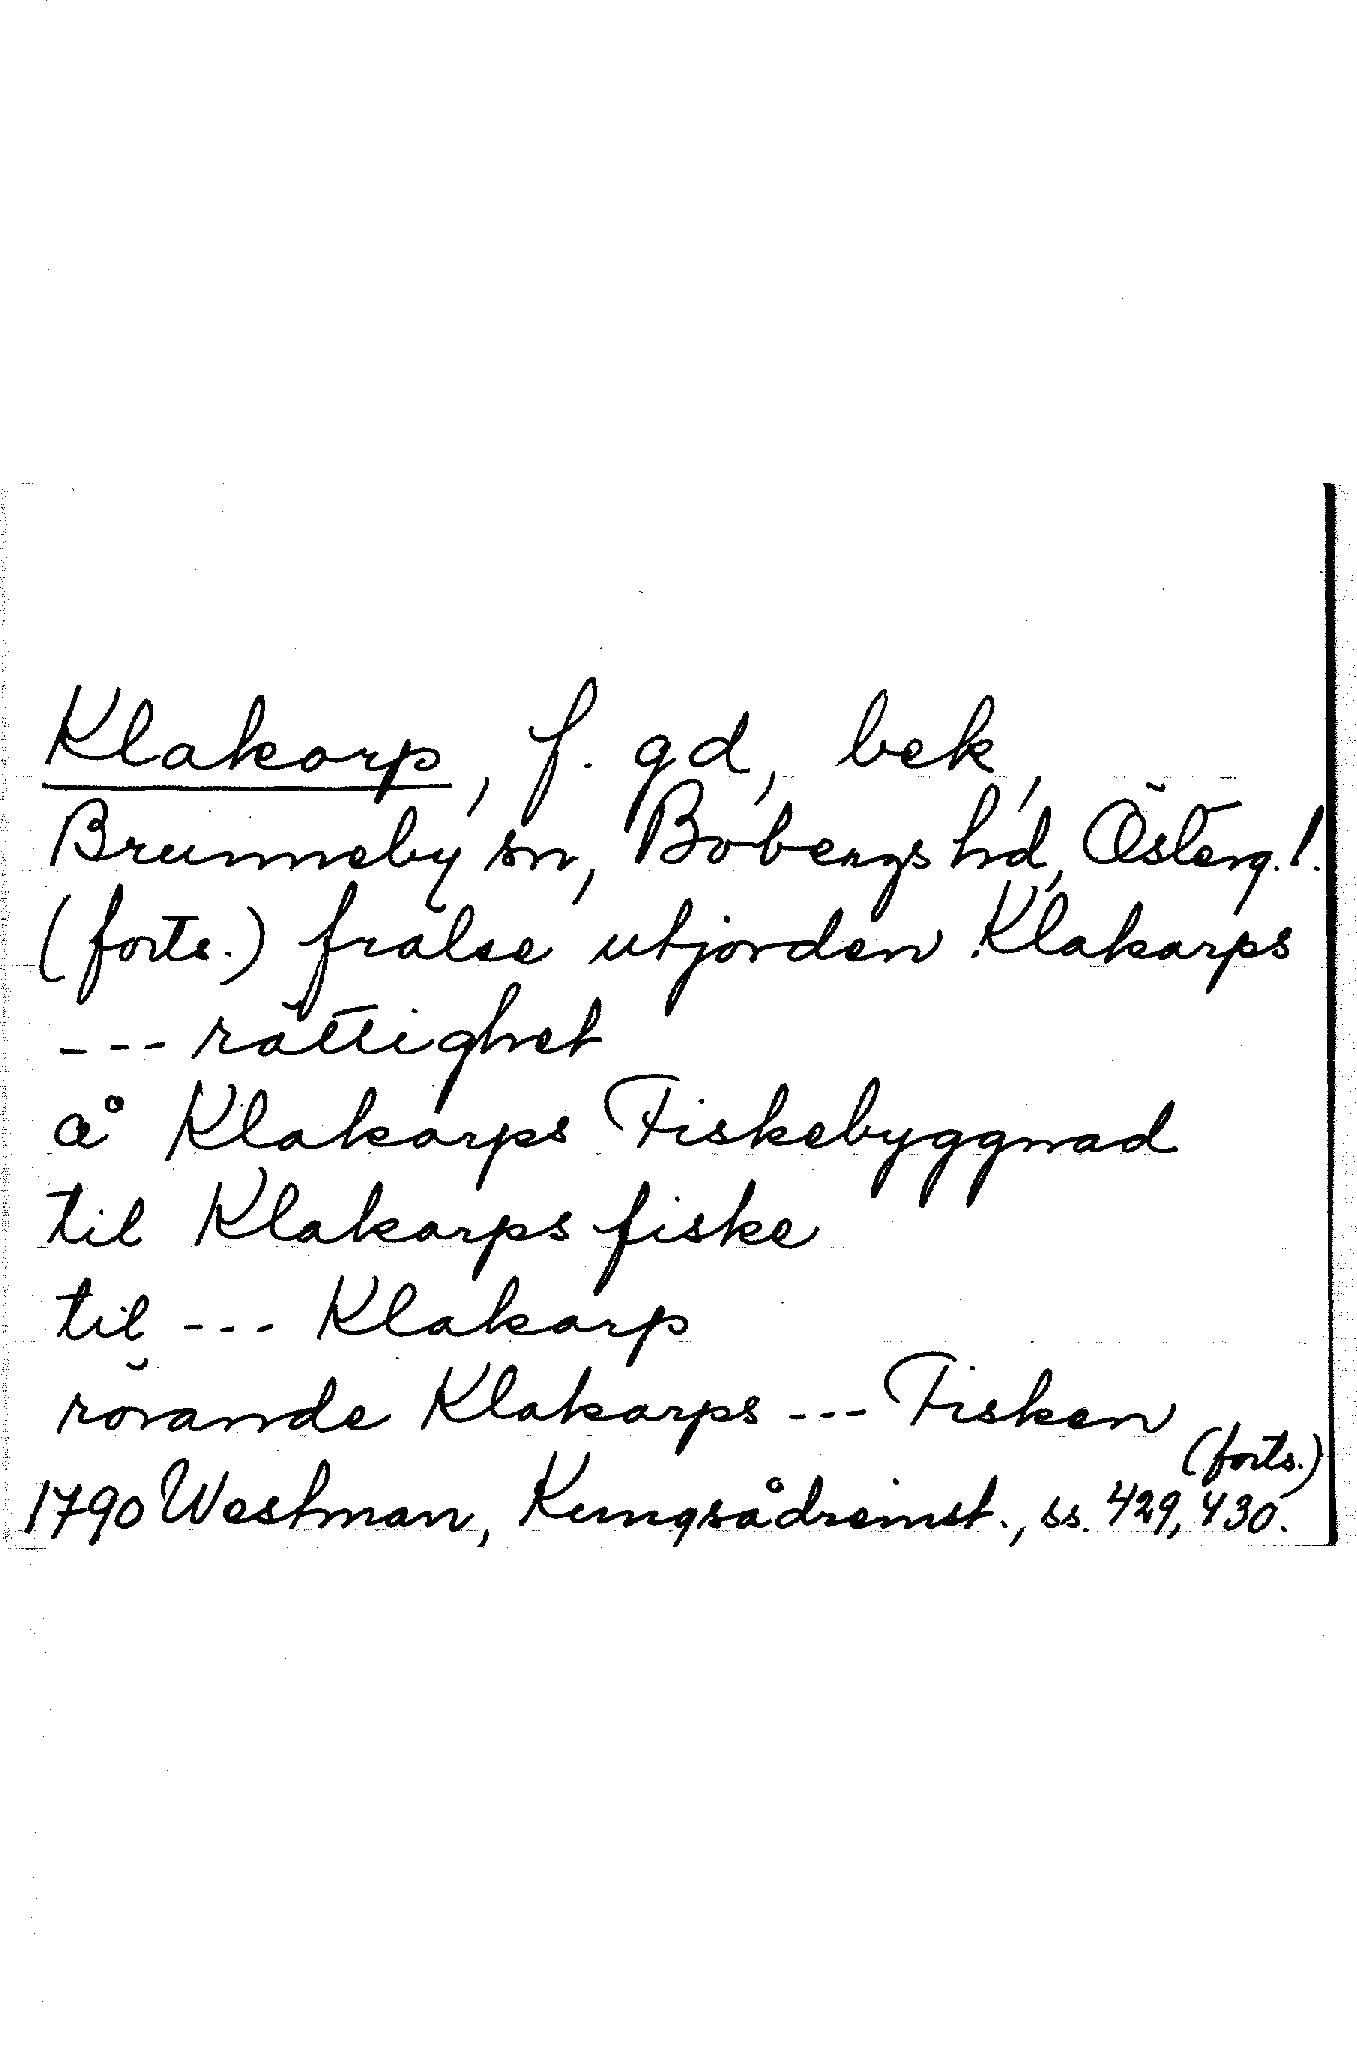 Klakorp, f. gd, bek,
Brunneby sn, Bobergs hd, Österg. l.
(forts.) frälse utjorden Klakarps
--- rättighet
å Klakarps Fiskebyggnad
til Klakarps fiske
til --- Klakarp
rörande Klakarps --- Fisken
(forts.)
1790 Westman, Kungsådreinst., ss. 429, 430.